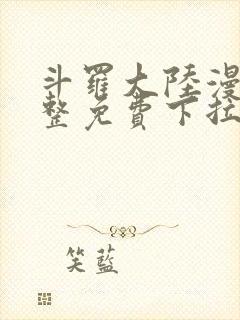 斗羅大陸漫
整免費下拉
笑藍